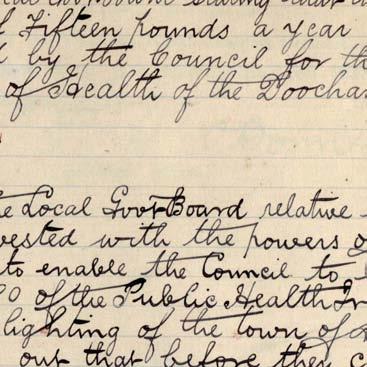 Fifteen pounds a year
by the Council for th
of Health of the Doochar
e Local Govt Board relative
vested with the powers o
to enable the Council to
0 of the Public Health Ir
lighting of the town of
out that before they c